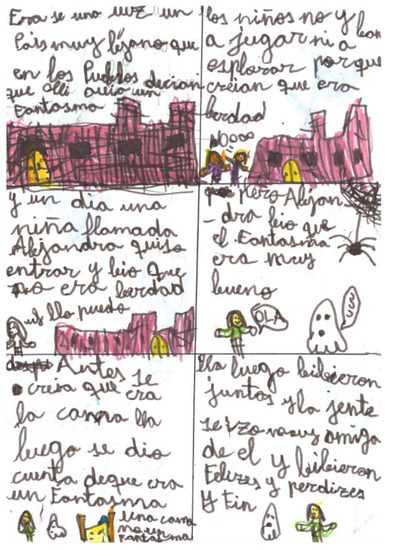 Era se una uvz un
Pais muy lejano que
en los Pueblos decian
que alli avia un
Fantasma
los niños no y ban
a jugar ni a
esplorar porque
creian que era
berdad
NOOOO
y un dia una
niña llamada
Alejandra quiso
entrar y bio que
no era berdad
llo puedo
pero Alejan
-dra bio que
el Fantasma
era muy
bueno
OLA
UUU
Antes se
creia que era
la cama lla
luego se dio
cuenta deque era
un Fantasma
una cama
no un
fantasma
lla luego bibieron
juntos y la jente
se izo muy amiga
de el y bibieron
Felizes y perdizes
y Fin